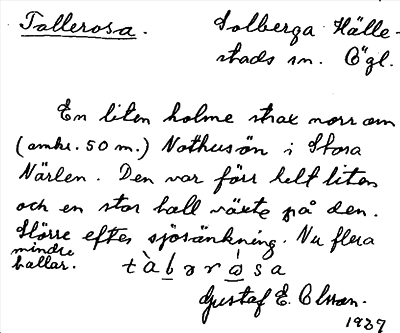 Tallerosa. Solberga Hälle-
stads sn. Ögl.
En liten holme strax norr om
(omkr. 50 m.) Nothusön i Stora
Närlen. Den var förr helt liten
och en stor tall växte på den.
Större efter sjösänkning. Nu flera
mindre
tallar. tàbərása
Gustaf E. Olsson.
1937